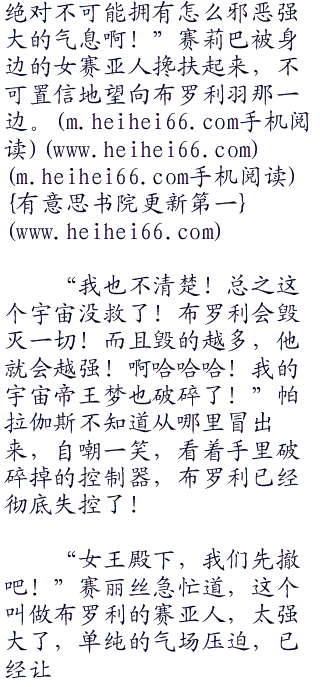 绝对不可能拥有怎么邪恶强
大的气息啊！”赛莉巴被身
边的女赛亚人搀扶起来，不
可置信地望向布罗利羽那一
边。(m.heihei66.com手机阅
读)(www.heihei66.com)
(m.heihei66.com手机阅读)
{有意思书院更新第一}
(www.heihei66.com)
“我也不清楚！总之这
个宇宙没救了！布罗利会毁
灭一切！而且毁的越多，他
就会越强！啊哈哈哈！我的
宇宙帝王梦也破碎了！”帕
拉伽斯不知道从哪里冒出
来，自嘲一笑，看着手里破
碎掉的控制器，布罗利已经
彻底失控了！
“女王殿下，我们先撤
吧！”赛丽丝急忙道，这个
叫做布罗利的赛亚人，太强
大了，单纯的气场压迫，已
经让